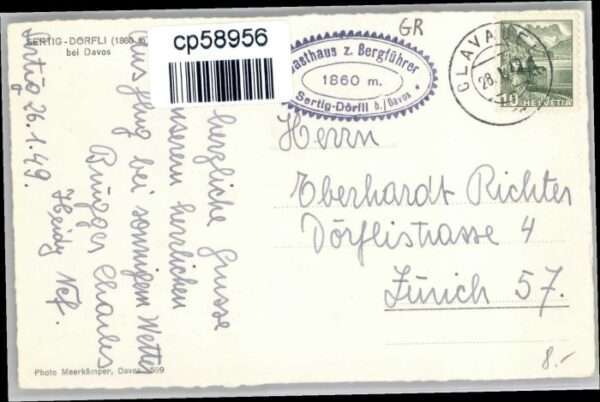 SERTIG-DÖRFLI (1860 m)
bei Davos
cp58956
GR
Gasthaus z. Bergführer
1860 m.
Sertig-Dörfli b./Davos
CLAVADEL
28.
10 HELVETIA
Sertig 26.1.49.
herzliche Grüsse
unserem herrlichen
Ausflug bei sonnigem Wetter
Burger Charles
Heidy Nef.
Herrn
Eberhardt Richter
Dörflistrasse 4
Zürich 57.
8.-
Photo Meerkämper, Davos